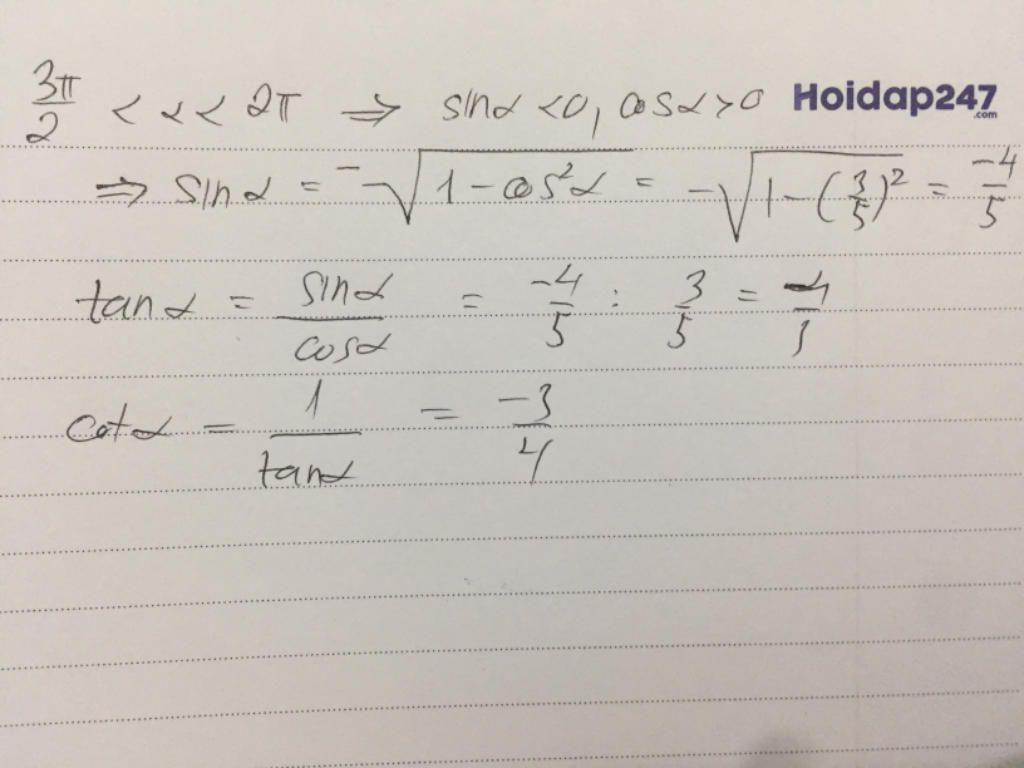 3π/2 < α < 2π ⇒ sinα <0, cosα >0
Hoidap247
.com
⇒ sinα = -√(1-cos²α) = -√(1-(3/5)²) = -4/5
tanα = sinα/cosα = -4/5 : 3/5 = -4/3
cotα = 1/tanα = -3/4